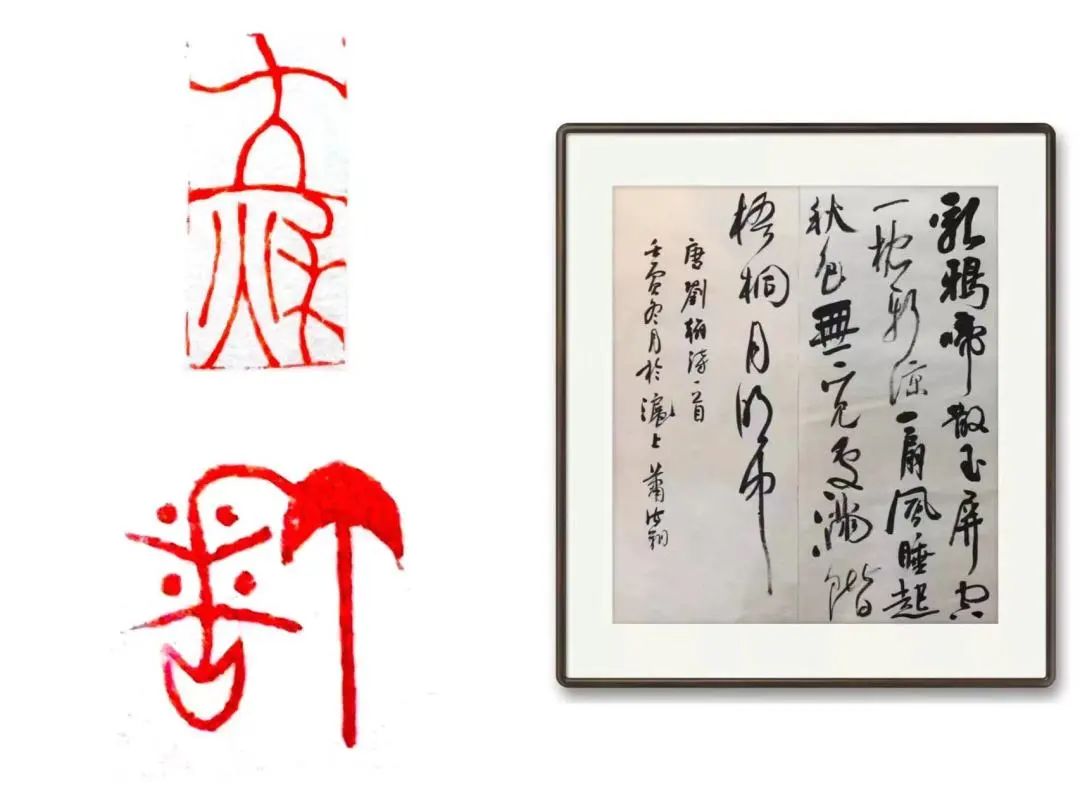 乳鴉啼散玉屏空
一枕新涼一扇風睡起
秋色無覓處滿階
梧桐月明中
唐劉翰詩一首
壬寅冬月於滬上 蕭